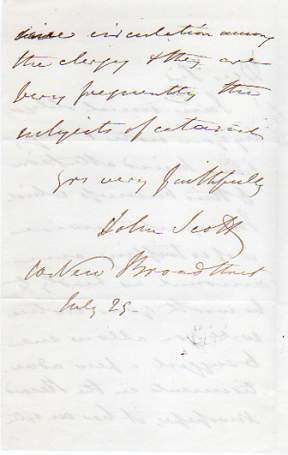 circulation among
the clergy & they are
very frequently the
subjects of cataract
Yrs very faithfully
John Scott
10 New Broad Street
July 25 -